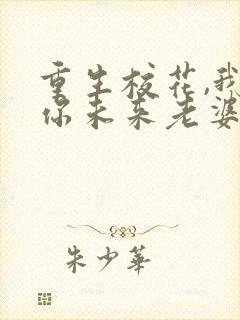 重生校花,我
你未来老婆
朱少華